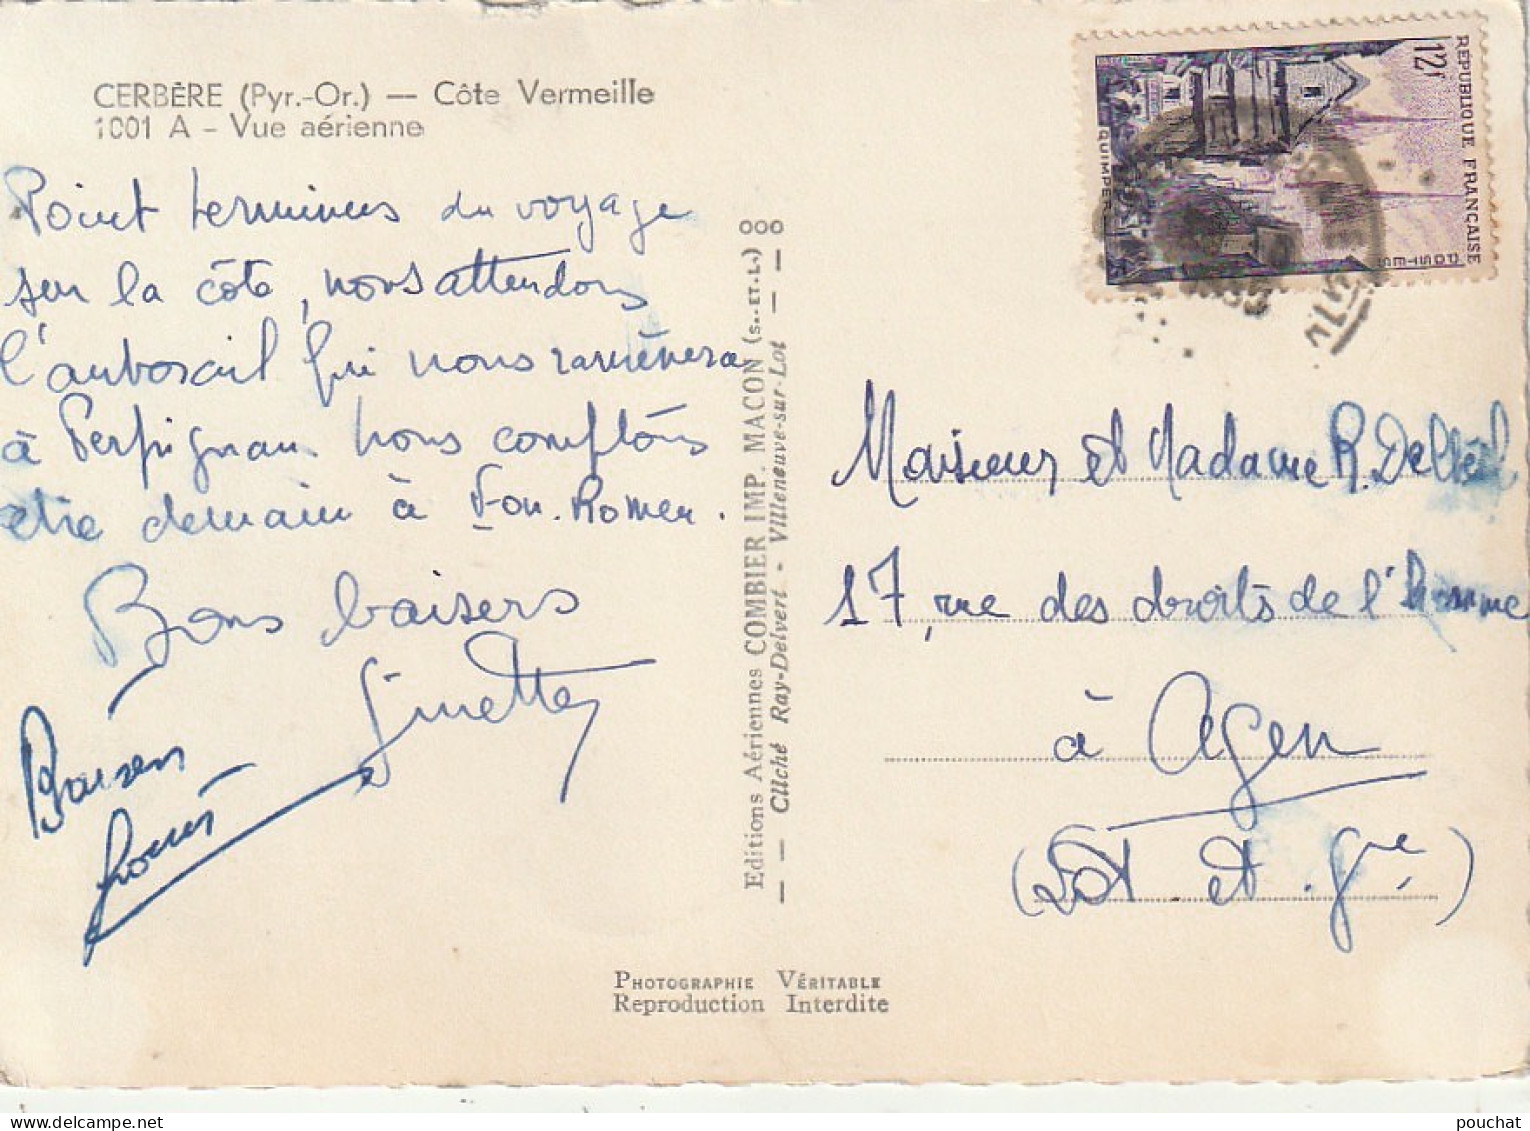 CERBÈRE (Pyr.-Or.) — Côte Vermeille
1001 A - Vue aérienne
Point terminus du voyage
sur la côte, nous attendons
l'autorail qui nous ramènera
à Perpignan. Nous comptons
être demain à Fon-Romeu.
Bons baisers
Ginette
Baisers
Louis
Editions Aériennes COMBIER IMP. MACON (S.-ET-L.) 000
— — Cliché Ray-Delvert - Villeneuve-sur-Lot — —
RÉPUBLIQUE FRANÇAISE
12f
QUIMPER
POSTES
Monsieur et Madame R. Delbel
17, rue des droits de l'homme
à Agen
(Lot et Gne)
PHOTOGRAPHIE VÉRITABLE
Reproduction Interdite
pouchat